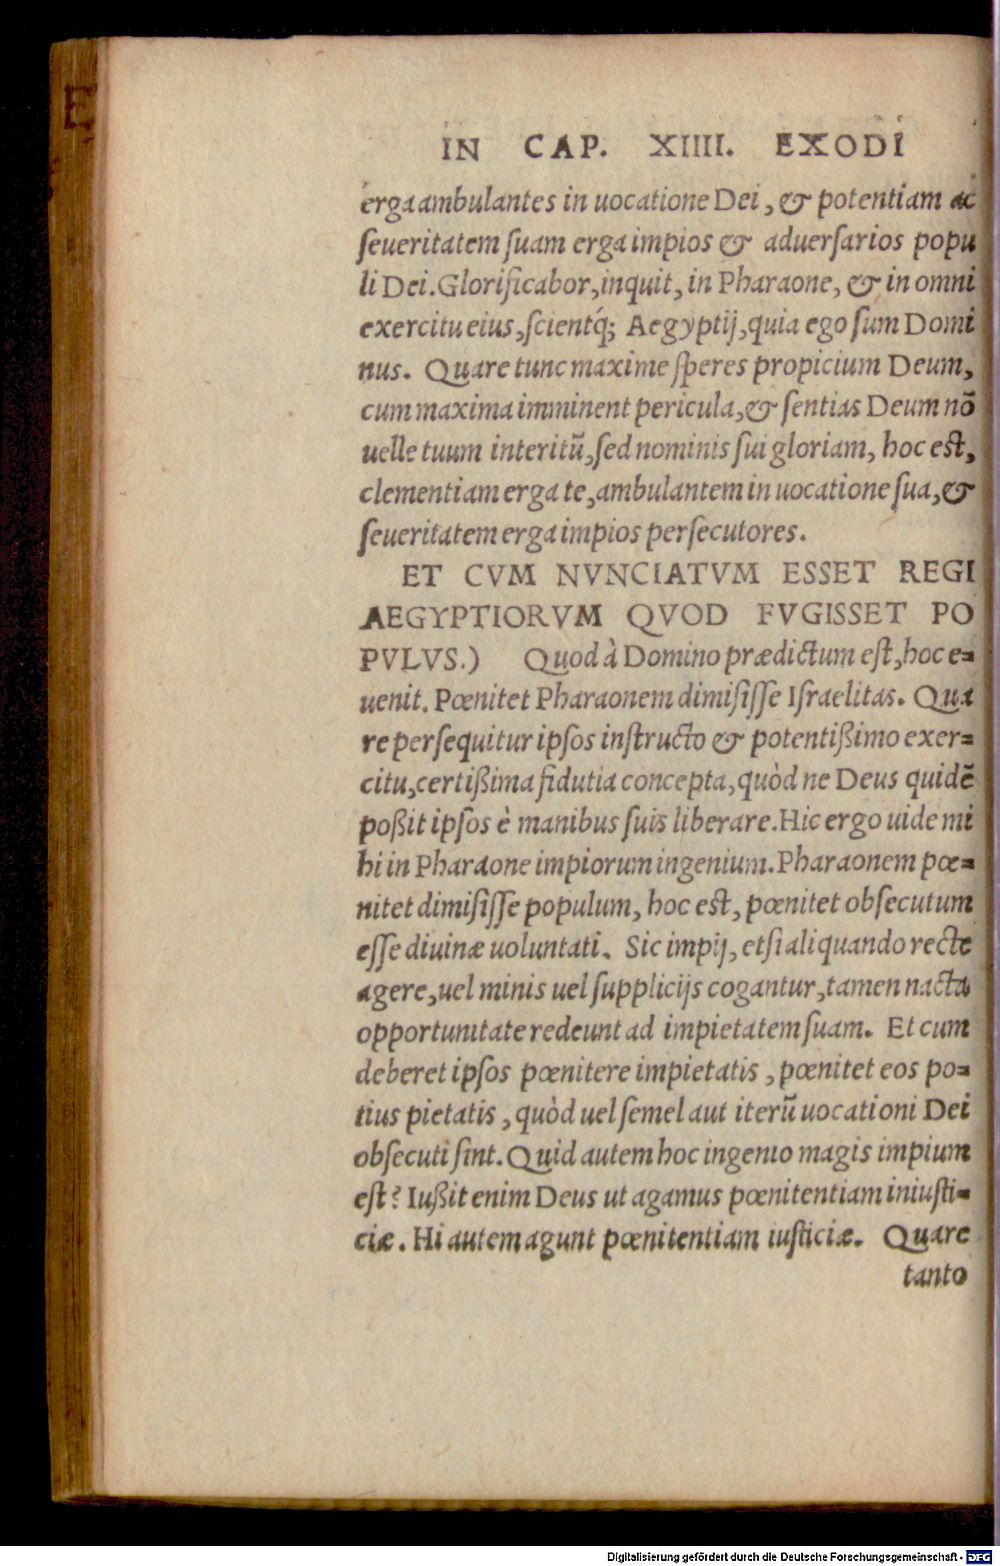 IN CAP. XIIII. EXODI
erga ambulantes in uocatione Dei, & potentiam ac
seueritatem suam erga impios & aduersarios popu
li Dei. Glorificabor, inquit, in Pharaone, & in omni
exercitu eius, scientq́; Aegyptij, quia ego sum Domi
nus. Quare tunc maxime speres propicium Deum,
cum maxima imminent pericula, & sentias Deum nõ
uelle tuum interitũ, sed nominis sui gloriam, hoc est,
clementiam erga te, ambulantem in uocatione sua, &
seueritatem erga impios persecutores.
ET CVM NVNCIATVM ESSET REGI
AEGYPTIORVM QVOD FVGISSET PO
PVLVS.) Quod à Domino prædictum est, hoc e-
uenit. Pœnitet Pharaonem dimisisse Israelitas. Qua
re persequitur ipsos instructo & potentißimo exer-
citu, certißima fidutia concepta, quòd ne Deus quidẽ
poßit ipsos è manibus suis liberare. Hic ergo uide mi
hi in Pharaone impiorum ingenium. Pharaonem pœ-
nitet dimisisse populum, hoc est, pœnitet obsecutum
esse diuinæ uoluntati. Sic impij, etsi aliquando recte
agere, uel minis uel supplicijs cogantur, tamen nacta
opportunitate redeunt ad impietatem suam. Et cum
deberet ipsos pœnitere impietatis, pœnitet eos po-
tius pietatis, quòd uel semel aut iterũ uocationi Dei
obsecuti sint. Quid autem hoc ingenio magis impium
est? Iußit enim Deus ut agamus pœnitentiam iniusti-
ciæ. Hi autem agunt pœnitentiam iusticiæ. Quare
tanto
Digitalisierung gefördert durch die Deutsche Forschungsgemeinschaft - DFG